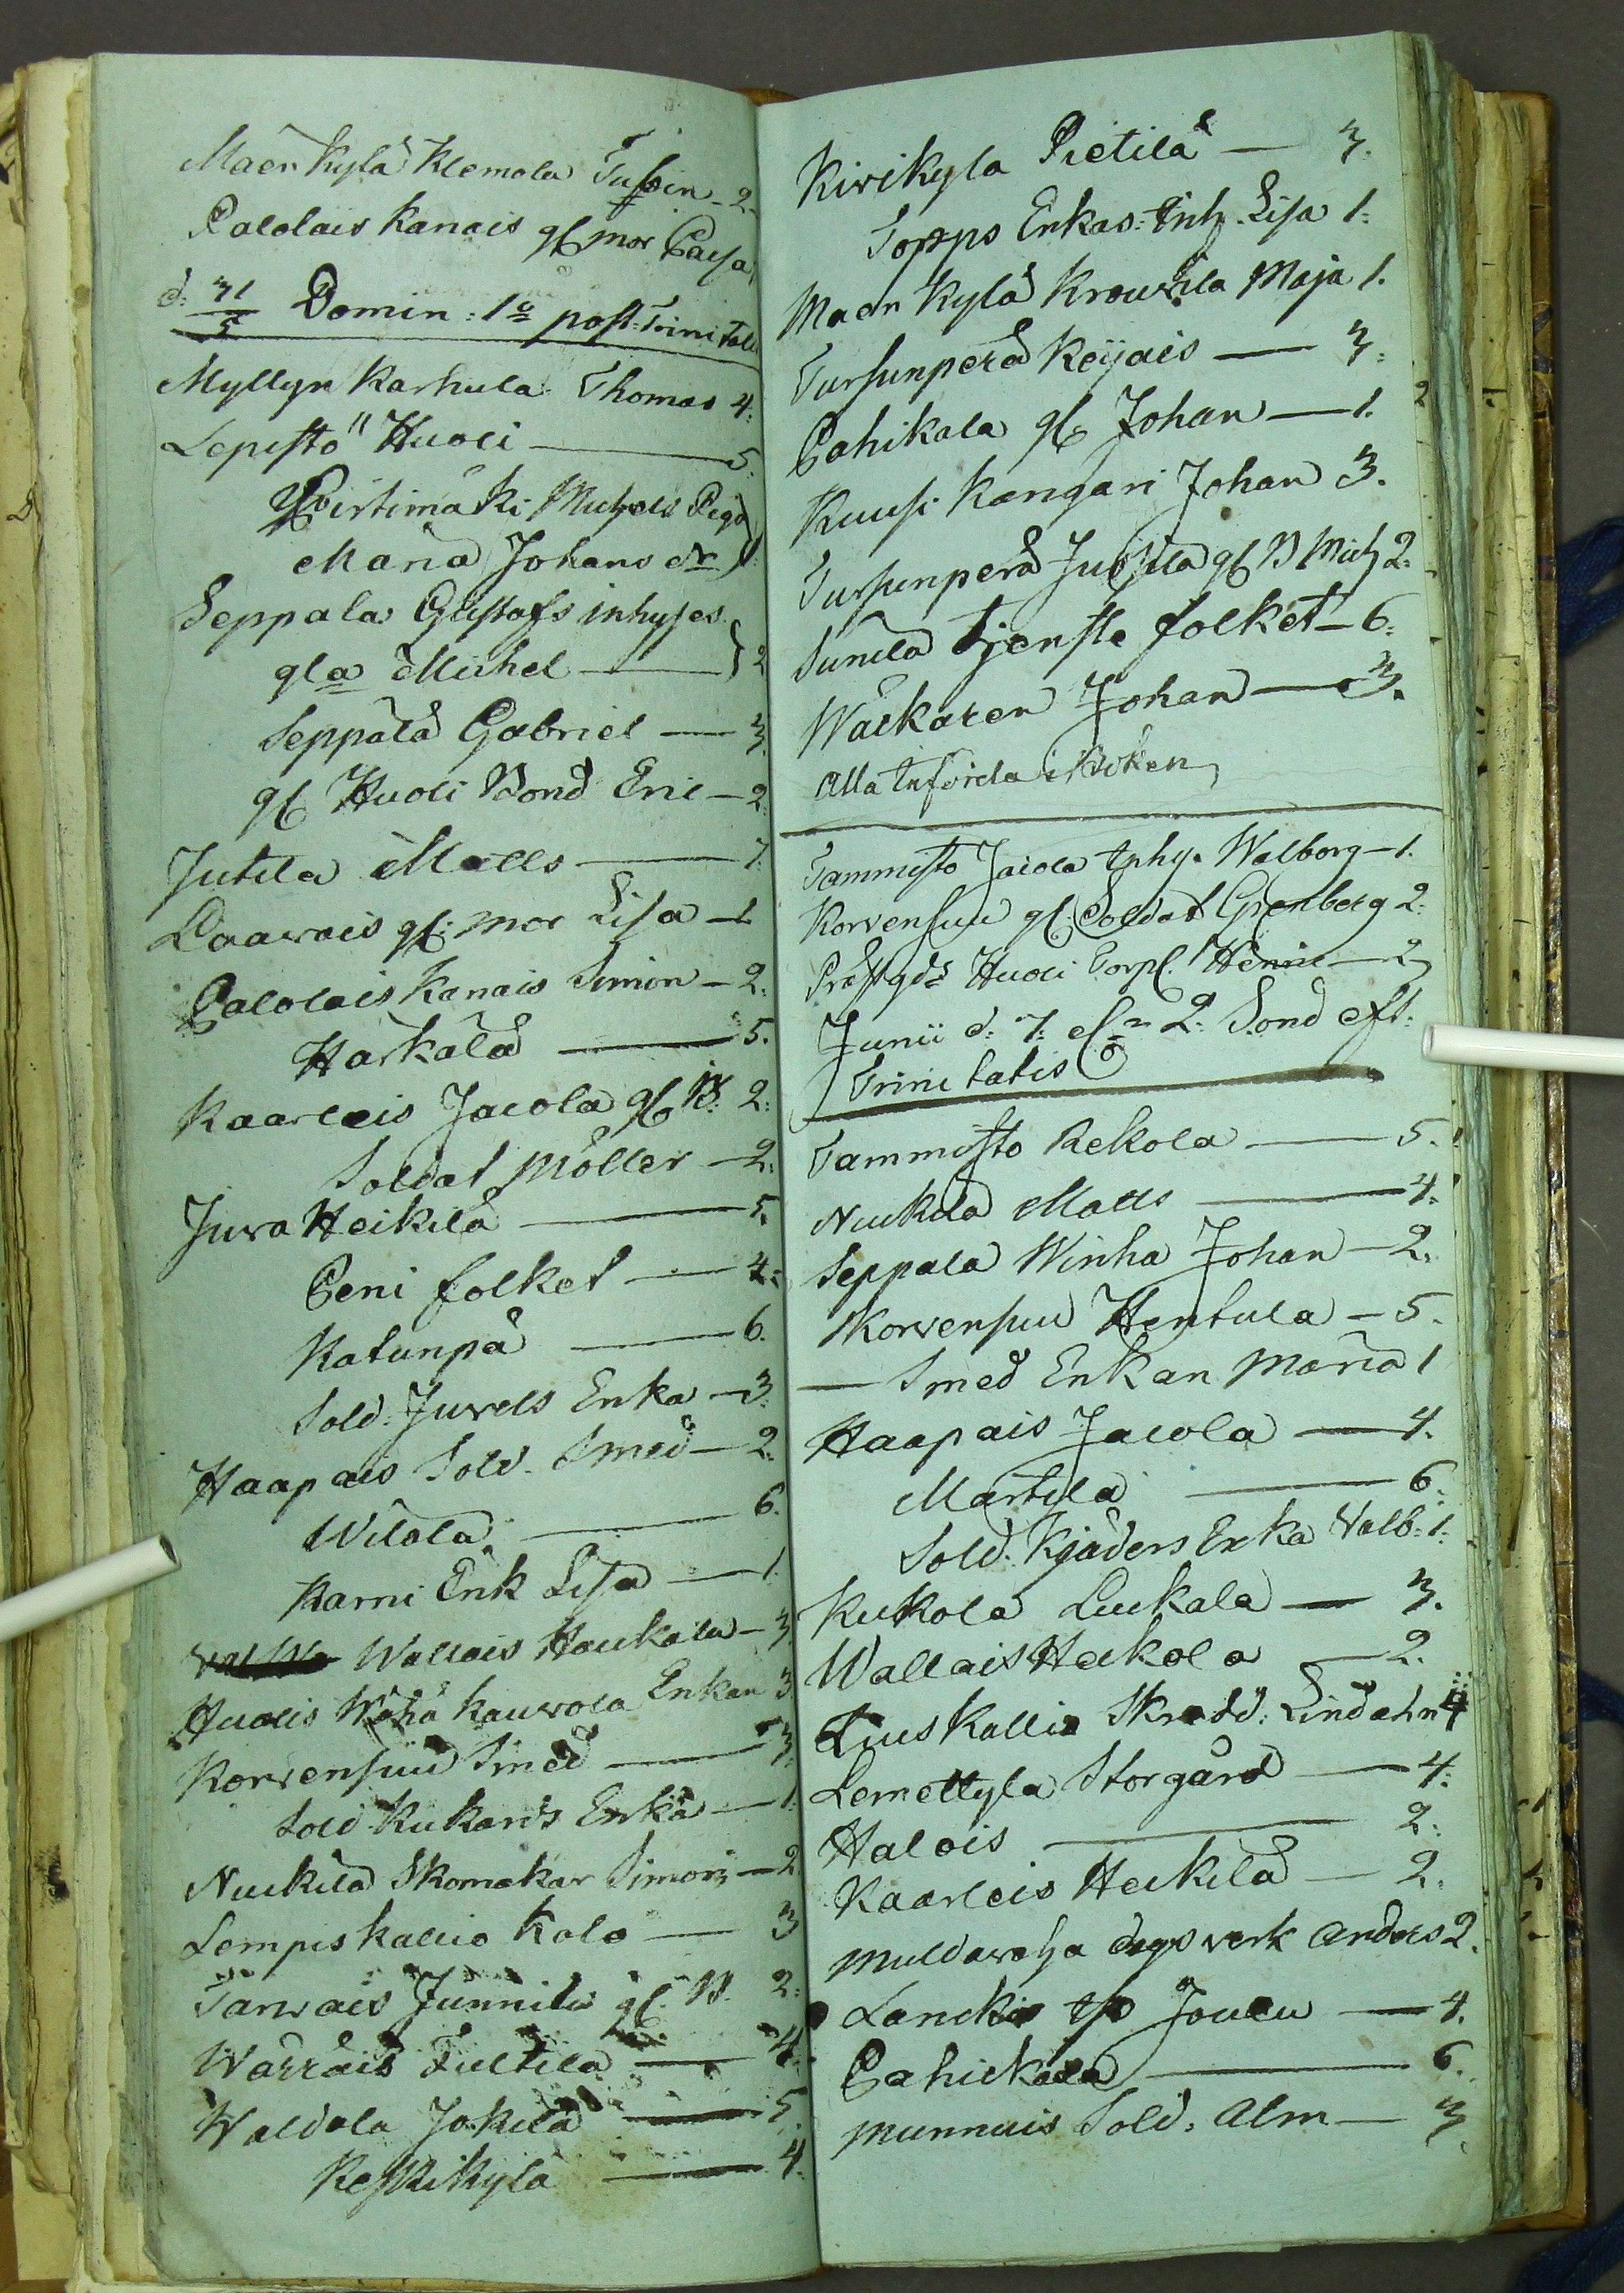 Maen Kylä Klemola Tussin - 2
Palolais Kanais gl mor Caisa
d: 31/5 Domin: 1a post Trinitatis
Myllyn Karhula Thomas 4.
Lepistö Huoli — 5.
Pirtimäki Michels Piga
Maria Johans dr } 1.
Seppälä Gustafs inhyses
gla Michel — } 2
Seppälä Gabriel — 3.
gl Huoli Bond Eric — 2.
Jutila Matts — 7.
Laawais gl: mor Lisa — 1
Palolais Kanais Simon — 2.
Harkälä — 5.
Kaarlais Jacola gl B. 2:
Soldat Möller — 2:
Juva Heikilä — 5.
Peni folket — 4:
Katunpä — 6.
Sold: Juvels Enka — 3.
Haapais Sold. Smed — 2.
Wilola — 6.
Karni Enk Lisa — 1.
Wallais Haukala — 3.
Huolis Wähä Kauwola Enkan 3
Korvensuu Smed — 3.
Sold Kukards Enka — 1.
Nuckila Skomakar Simon — 2
Lempiskallio Kalo — 3
Tarvais Junnila gl. B. 2:
Wärräis Tultila — 4.
Waldola Jokila — 5.
Keskikylä — 4.
Kirikyla Pietilä — 3.
Torpps Enkas: inh. Lisa 1.
Maen Kylä Krouvila Maja 1.
Tursunperä Keijais — 3.
Pahikala gl Johan — 1. 2
Kuusi Kangari Johan 3.
Tursunperä Jussila gl B Mich 2.
Sunila tjenste folket — 6.
Wäckaren Johan — 3.
Alla införda i Boken
Tammisto Jacola inhy. Walborg — 1.
Korvensuu gl Soldat Grönberg 2:
Prästgds Huoli Torp. Henric — 2
Junii d: 7: el 2: Sond eft:
Trinitatis
Tammisto Rekola — 5.
Nuckila Matts — 4.
Seppälä Winha Johan — 2.
Korvensuu Hentula — 5.
— Smed Enkan Maria 1
Haapais Jacola — 4.
Märtylä — 6.
Sold. Kjäders Enka Valb: 1.
Kukola Luckala — 3.
Wallais Heikola — 2.
Liuskallio Skredd: Lindahn 4
Lemettylä Storgård — 4.
Halois — 2.
Kaarlais Heikilä — 2.
Muldawaha dagsverk Anders 2.
Lanckis Joucu — 4.
Pahickala — 6.
Munnuis Sold: Alm — 3.